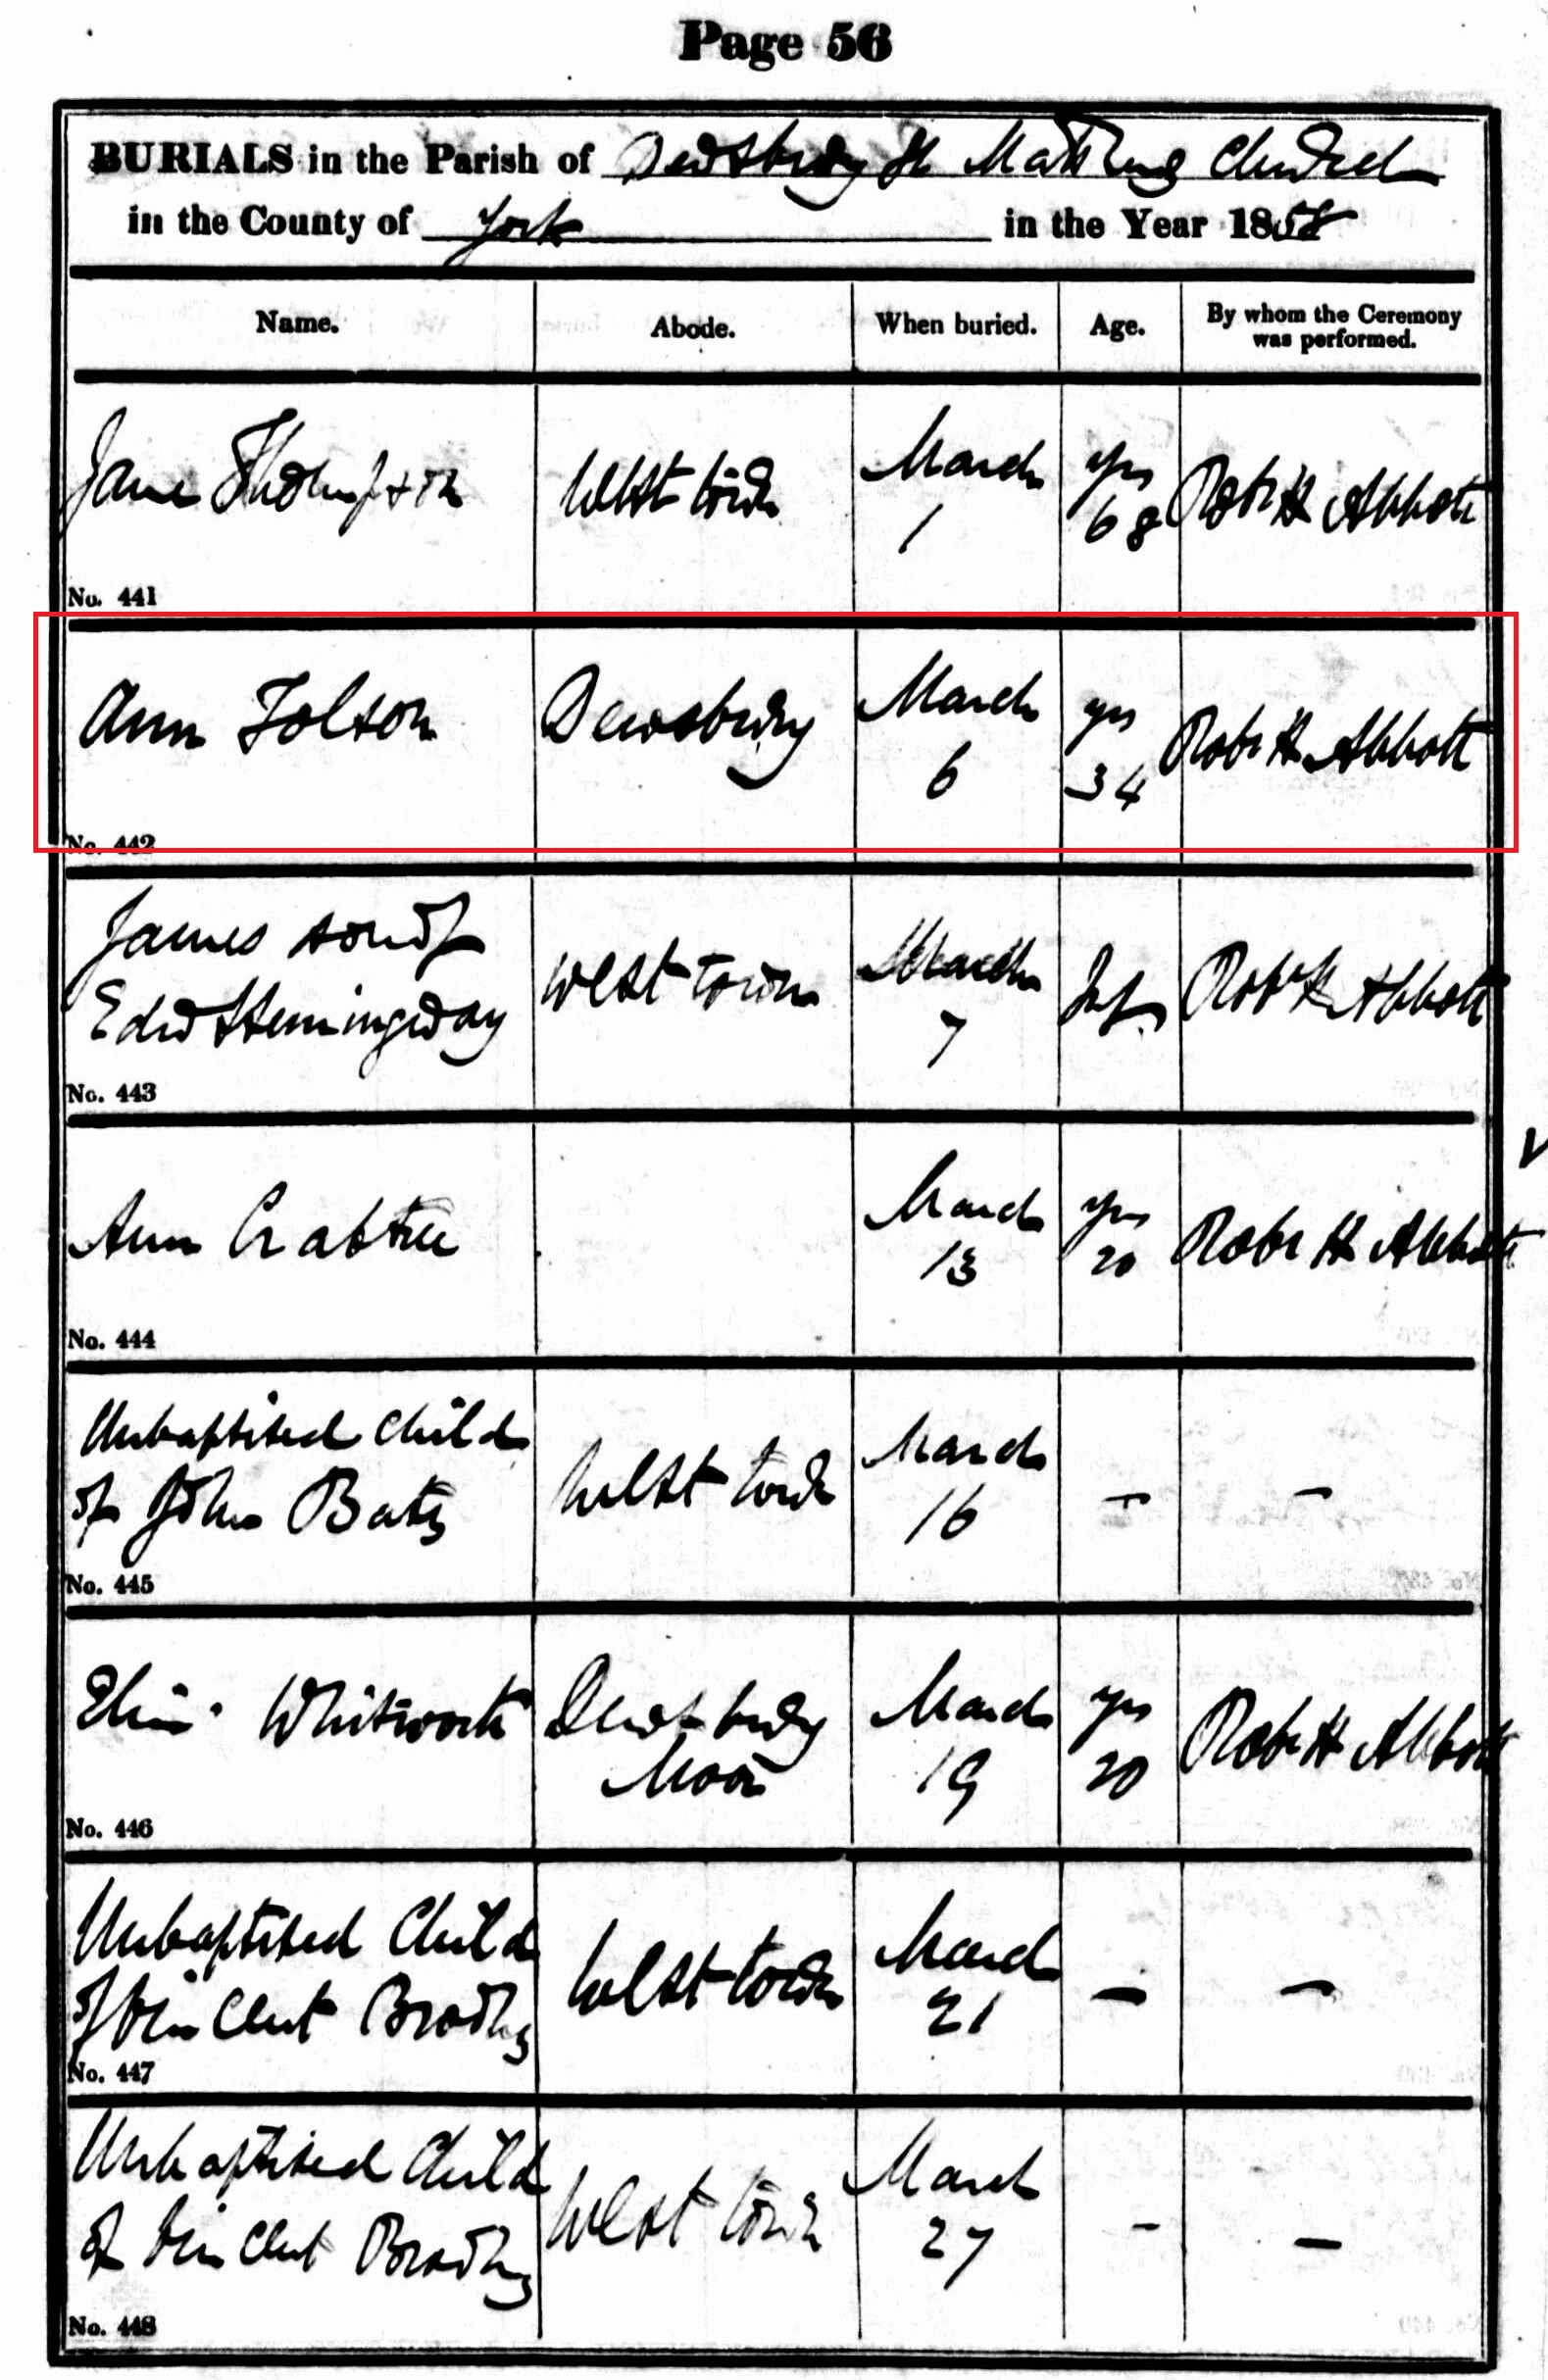 Page 56
BURIALS in the Parish of Dewsbury St Matthews Church
in the County of York in the Year 1858
Name. Abode. When buried. Age. By whom the Ceremony was performed.
Jane Thompson West town March 1 yrs 68 Robt H Abbott
No. 441
Ann Tolson Dewsbury March 6 yrs 34 Robt H Abbott
No. 442
James son of
Edwd Hemingway West town March 7 Inf. Robt H Abbott
No. 443
Ann Crabtree March 13 yrs 20 Robt H Abbott
No. 444
Unbaptised Child
of John Bates West town March 16 – –
No. 445
Whitworth Dewsbury Moor March 19 yrs 20 Robt H Abbott
No. 446
Unbaptised Child
of Vincent Brodley West town March 21 – –
No. 447
Unbaptised Child
of Vincent Brodley West town March 27 – –
No. 448